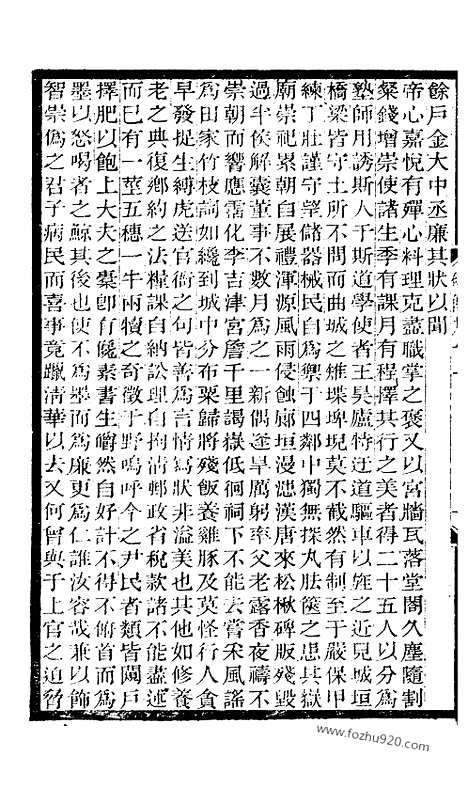 餘戶金大中丞廉其狀以聞
帝心嘉悅有殫心料理克盡職掌之褒又以宮牆瓦落堂閣久塵隨割
粲錢增崇使諸生季有課月有程擇其行之美者得二十五人以分爲
塾師用誘斯人于斯道學使者王昊廬特迂道驅車以旌之近見城垣
橋梁皆守土所不問而曲城之雉堞埤堄莫不截然有制至于嚴保甲
練丁壯謹守望儲器械民自爲禦于四鄰中獨無探丸胠篋之患其嶽
廟崇祀累朝自展禮渾源風雨侵蝕廊垣漫漶漢唐來松楸碑版殘毀
過半侯解囊董事不數月爲之一新偶逢旱厲躬率父老露香夜禱不
崇朝而響應霑化李吉津宮詹千里謁嶽低徊祠下不能去嘗采風謠
爲田家竹枝詞如纔到城中分布粟歸將殘飯養雞豚及莫怪行人貪
早發捉生縛虎送官衙之句皆善爲言情寫狀非溢美也其他如修養
老之典復鄉約之法糧課自納訟理自拘清郵政省稅款諸不能盡述
而巳有一莖五穗一牛兩犢之奇徵于野嗚呼今之尹民者類皆閭戶
擇肥以飽上大夫之橐卽有餽素書生皭然自好計不得不俯首而爲
墨以怒喝者之鯨其後也使不爲墨而爲廉更爲仁誰汝容哉兼以飾
智崇僞之君子病民而喜事竟躐清華以去又何曾與于上官之迫脅
www.fozhu920.com